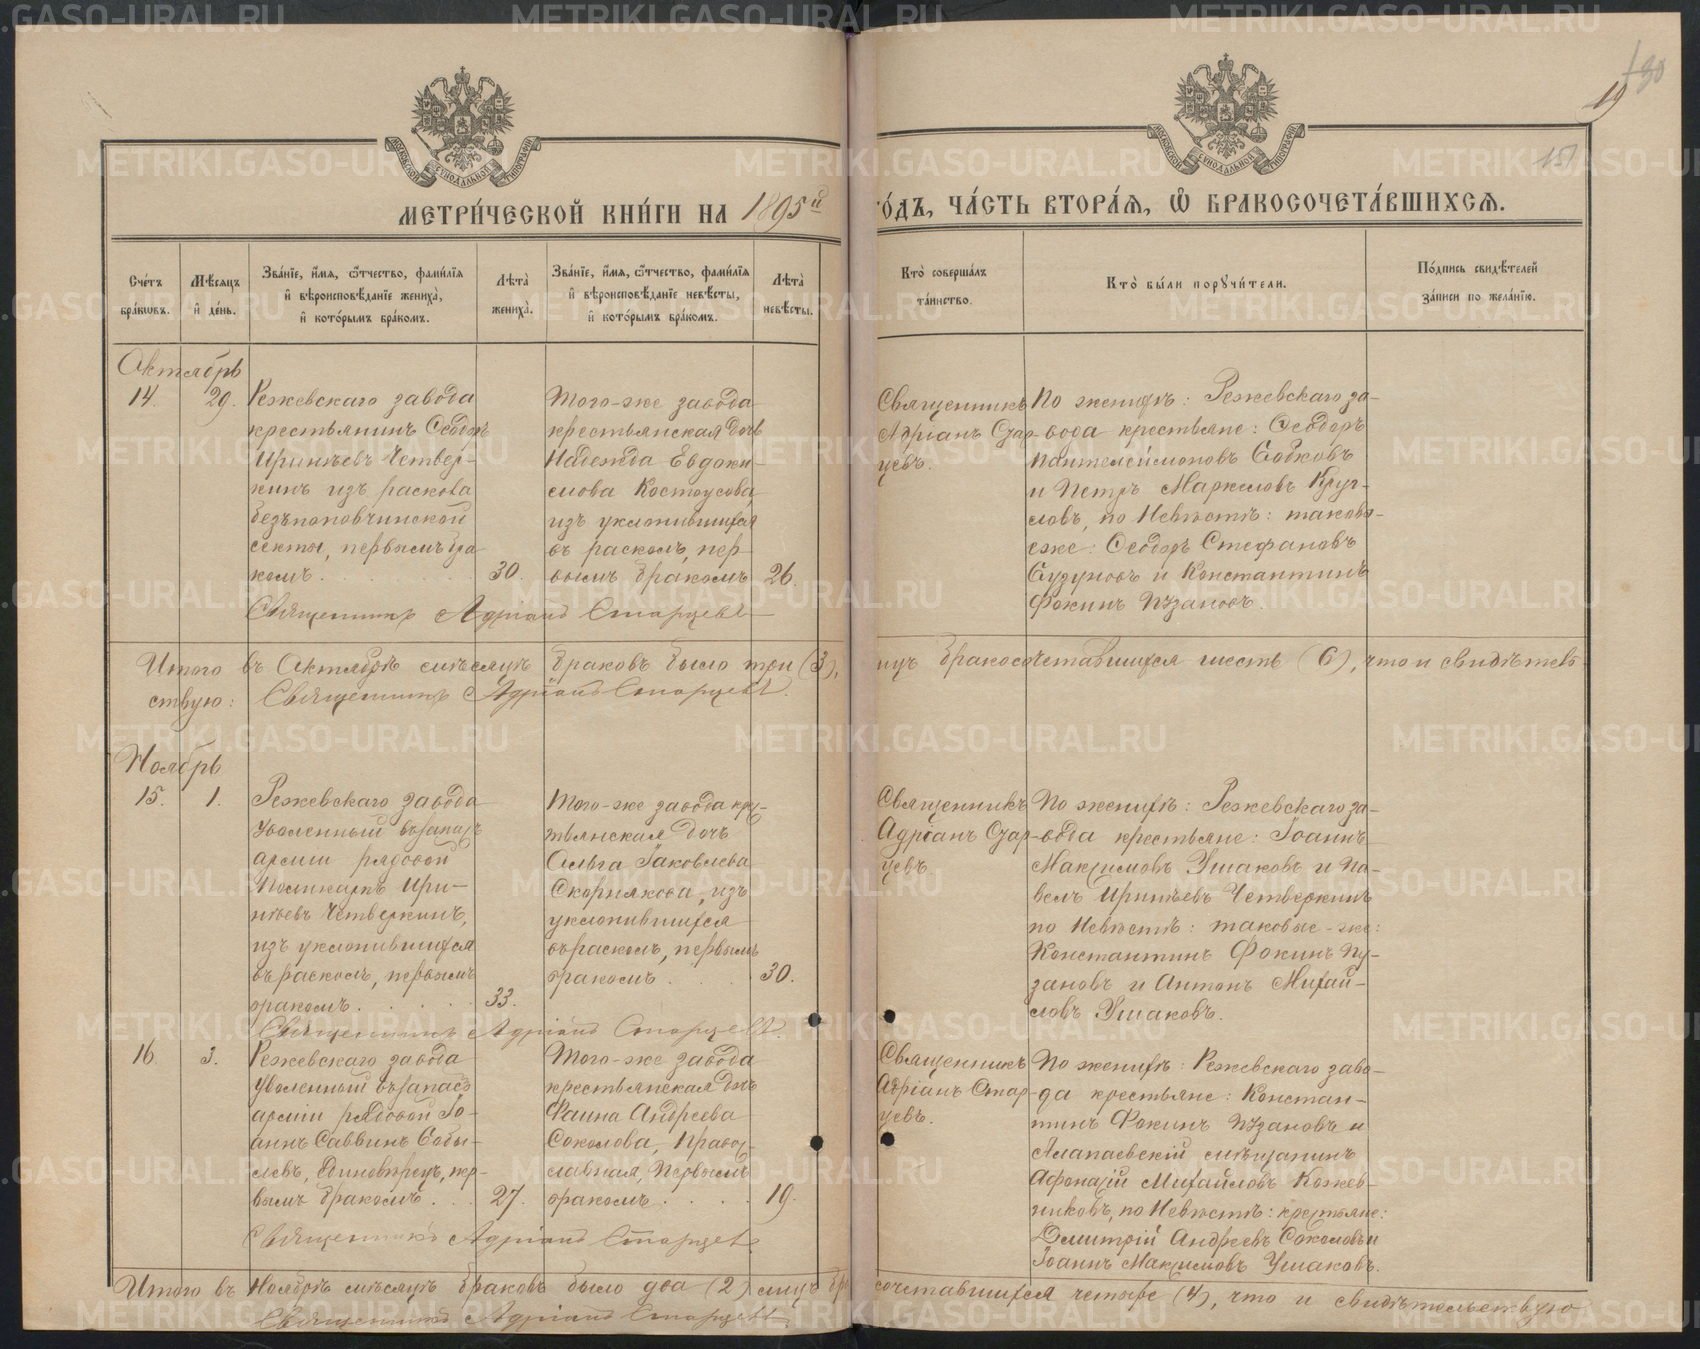 МЕТРИ́ЧЕСКОЙ КНИ́ГИ НА 1895й
ГО́ДЪ, ЧА́СТЬ ВТОРА́Я, Ѽ БРАКОСОЧЕТА́ВШИХСЯ.
19
180
151
Сче́тъ бра́кѡвъ.
Мѣ́сяцъ и҆ де́нь.
Зва́нїе, и҆́мя, ѻ҆́тчество, фами́лїя и҆ вѣроисповѣ́данїе жениха̀, и҆ кото́рымъ бра́комъ.
Лѣта̀ жениха̀.
Зва́нїе, и҆́мя, ѻ҆́тчество, фами́лїя и҆ вѣроисповѣ́данїе невѣ́сты, и҆ кото́рымъ бра́комъ.
Лѣта̀ невѣ́сты.
Кто̀ соверша́лъ та́инство.
Кто̀ бы́ли поручи́тели.
По́дпись свидѣ́телей за́писи по жела́нїю.
Октябрь
14. 29.
Режевскаго завода
крестьянинъ Ѳеодоръ
Иринѣевъ Четвер-
кинъ изъ раскола
безъпоповчинской
секты, первымъ бра-
комъ.
30.
Того-же завода
крестьянская дочь
Надежда Евдоки-
мова Костоусова,
изъ уклонившихся
въ расколъ, пер-
вымъ бракомъ
26.
Священникъ
Адріанъ Стар-
цевъ.
По женихѣ: Режевскаго за-
вода крестьяне: Ѳеодоръ
Пантелеймоновъ Бобковъ
и Петръ Маркеловъ Круг-
ловъ, по Невѣстѣ: таковы-
еже: Ѳеодоръ Стефановъ
и Константинъ
Фокинъ Пузановъ.
Священникъ Адріанъ Старцевъ
Итого въ Октябрѣ мѣсяцѣ браковъ было три (3),
лицъ бракосочетавшихся шесть (6), что и свидѣтель-
ствую: Священникъ Адріанъ Старцевъ.
Ноябрь
15. 1.
Режевскаго завода
уволенный въ запасъ
арміи рядовой
Поликарпъ Ири-
нѣевъ Четверкинъ,
изъ уклонившихся
въ расколъ, первымъ
бракомъ.
33.
Того-же завода крес-
тьянская дочь
Ольга Іаковлева
Скорнякова, изъ
уклонившихся
въ расколъ, первымъ
бракомъ
30.
Священникъ
Адріанъ Стар-
цевъ.
По женихѣ: Режевскаго за-
вода крестьяне: Іоаннъ
Максимовъ Ушаковъ и Па-
велъ Иринѣевъ Четверкинъ
по Невѣстѣ: таковые-же:
Константинъ Фокинъ Пу-
зановъ и Антонъ Михай-
ловъ Ушаковъ.
Священникъ Адріанъ Старцевъ.
16. 3.
Режевскаго завода
уволенный въ запасъ
арміи рядовой Іо-
аннъ Саввинъ Бобы-
левъ, Единовѣрецъ, пер-
вымъ бракомъ
27.
Того-же завода
крестьянская дочь
Фаина Андреева
Соколова, Право-
славная, Первымъ
бракомъ
19.
Священникъ
Адріанъ Стар-
цевъ.
По женихѣ: Режевскаго заво-
да крестьяне: Констан-
тинъ Фокинъ Пузановъ и
Алапаевскій мѣщанинъ
Афонасій Михайловъ Кожев-
никовъ, по Невѣстѣ: крестьяне:
Димитрій Андреевъ Соколовъ и
Іоаннъ Максимовъ Ушаковъ.
Священникъ Адріанъ Старцевъ.
Итого въ Ноябрѣ мѣсяцѣ браковъ было два (2) лицъ бра
сочетавшихся четыре (4), что и свидѣтельствую
Священникъ Адріанъ Старцевъ
METRIKI.GASO-URAL.RU